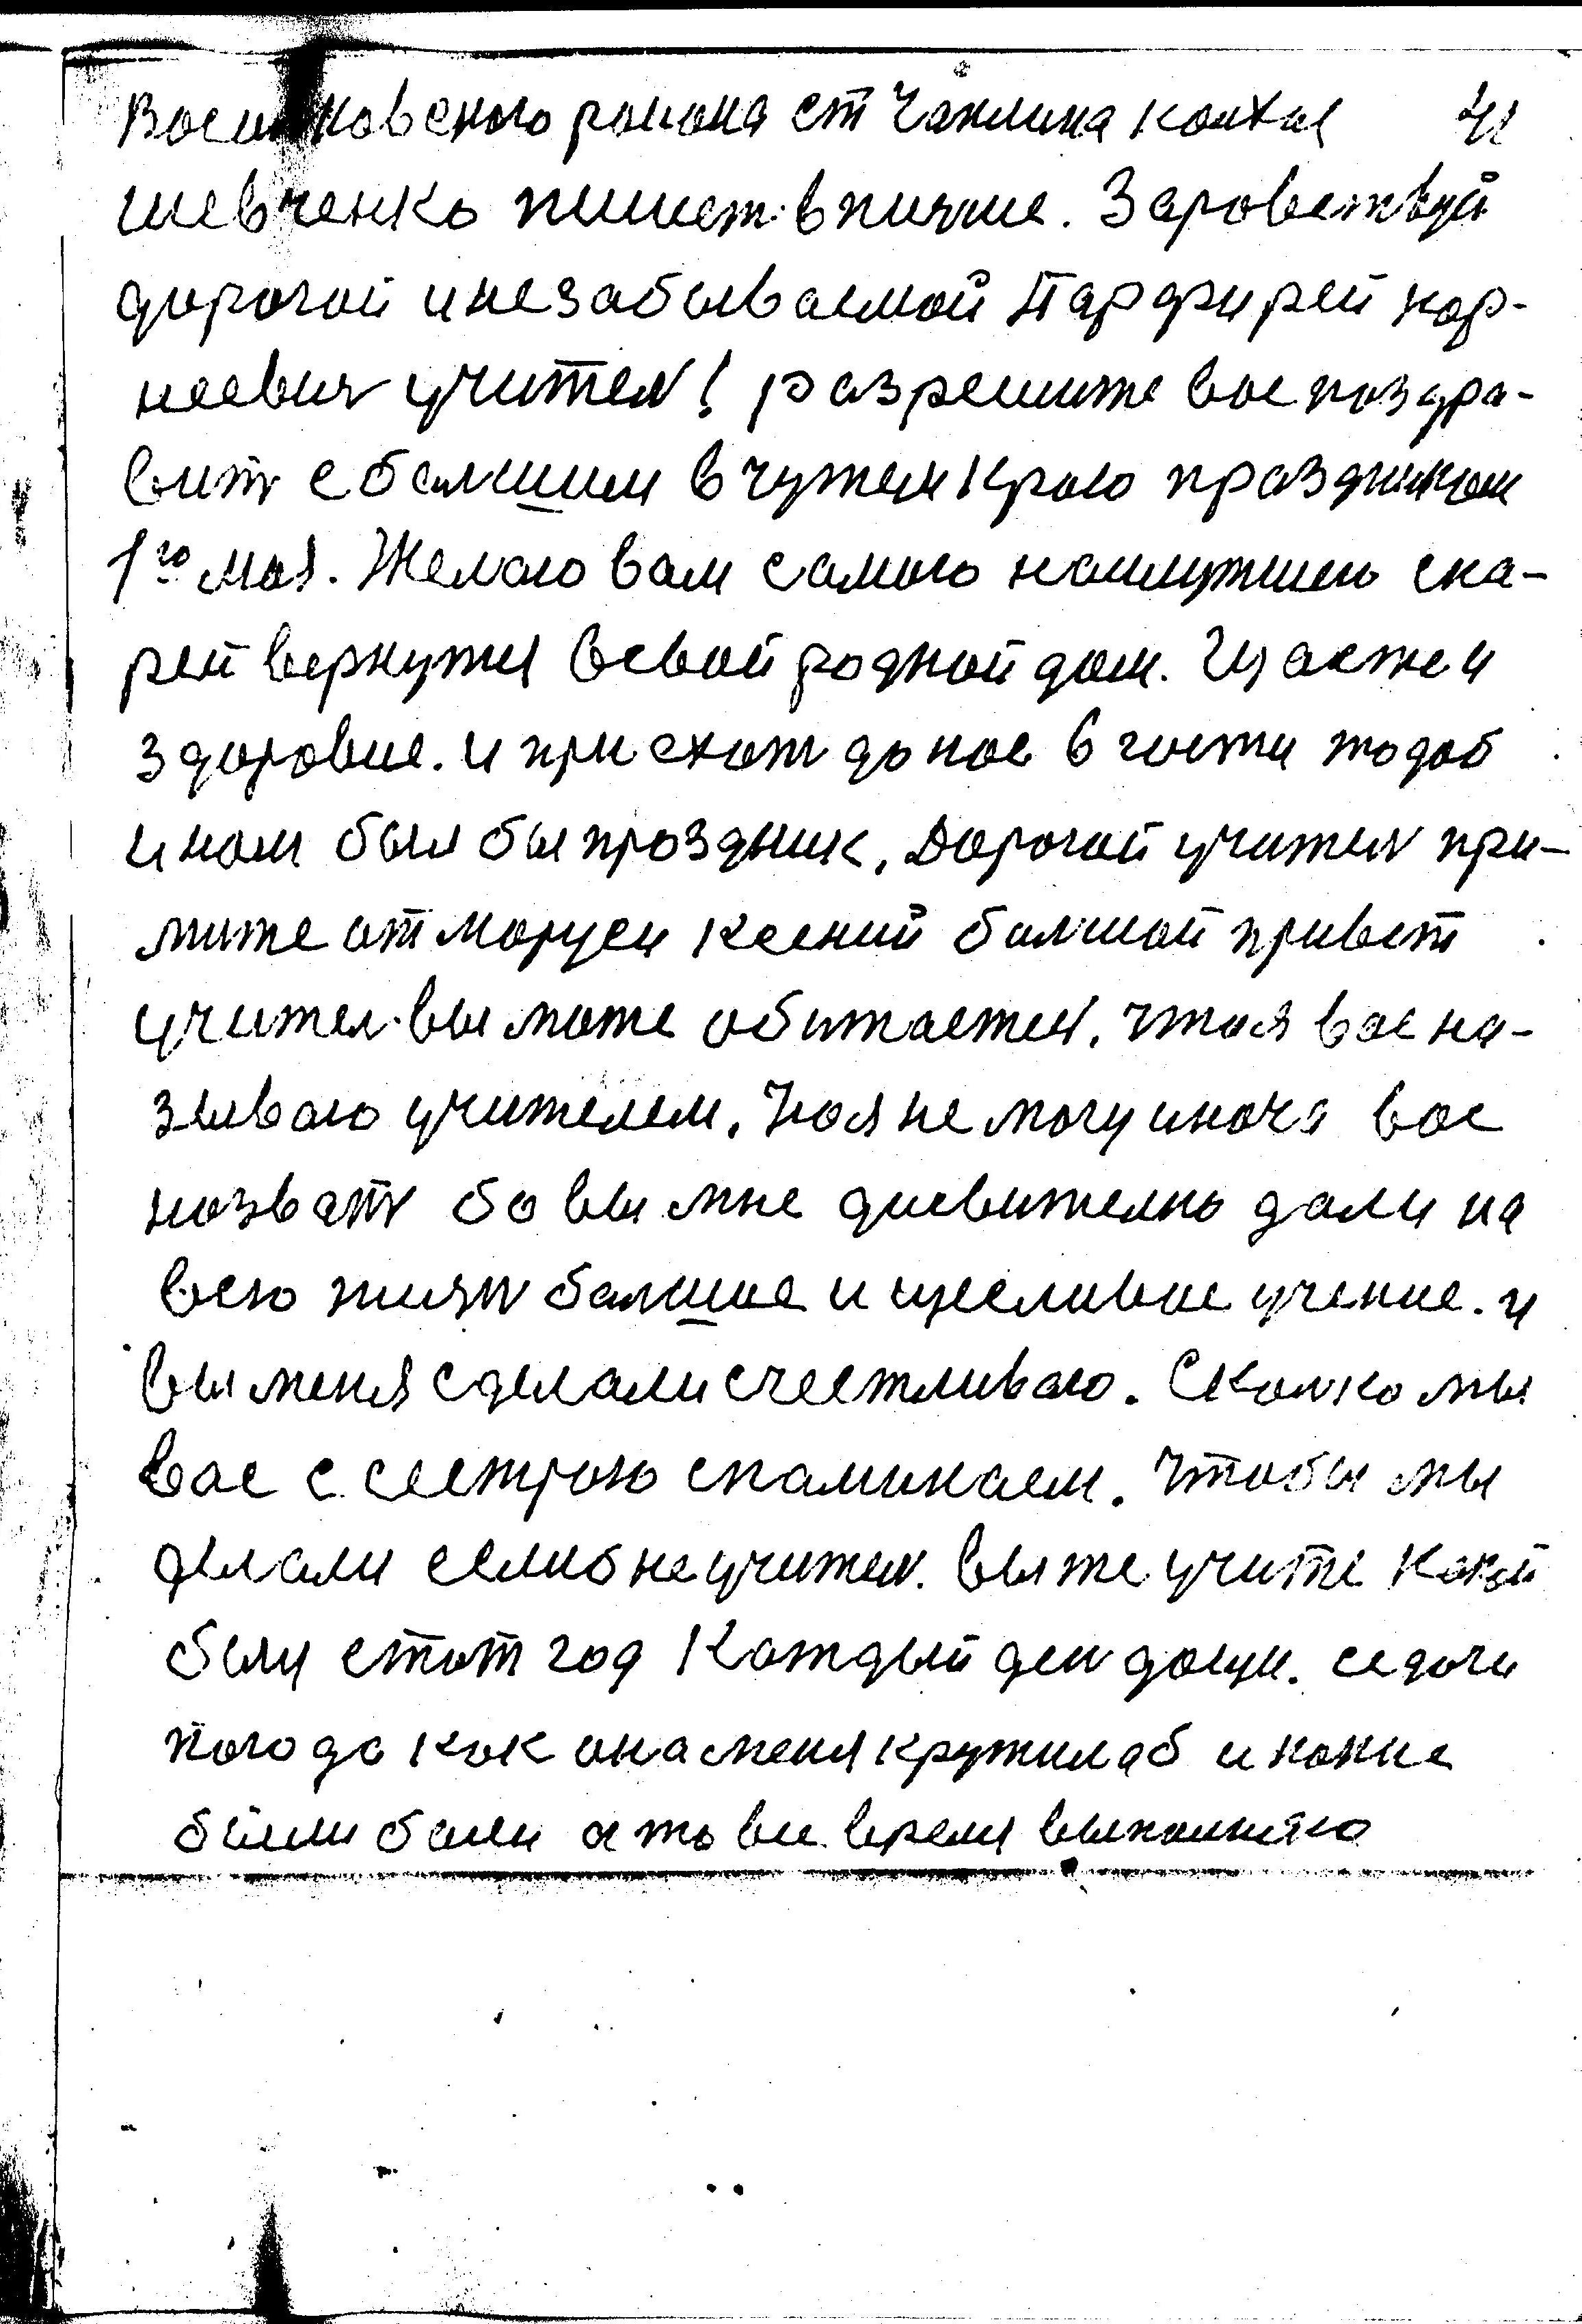 района ст Чаплина колхоз
шевченко пишет в пичме. Здроветвуй
дорогой и незабываемой Парфирей кор-
неевич учител! разрешите вас поздра-
вит с балшим в чужем краю праздником
1го мая. Желаю вам самого наилутшего ска-
рей вернутся в свой родной дом. Щастя и
здоровие. и приехат до нас в гости тодаб
и нам был бы праздник. Дорогой учител при-
мите от Маруси Ксений балшой привет
учител вы може обитаетеся. что я вас на-
зываю учителем. Но я не могу иначя вас
назват бо вы мне дисвително дали на
всю жизн балшое и щесливое учение. и
вы меня сделали счестливаю. Сколко мы
вас с сестрою спаминаем. Что бы мы
делали еслиб не учител. вы же учите какой
был етот год Каждый ден дощи.
погода как она меня кружилаб и какие
были боли а то все время выполняю